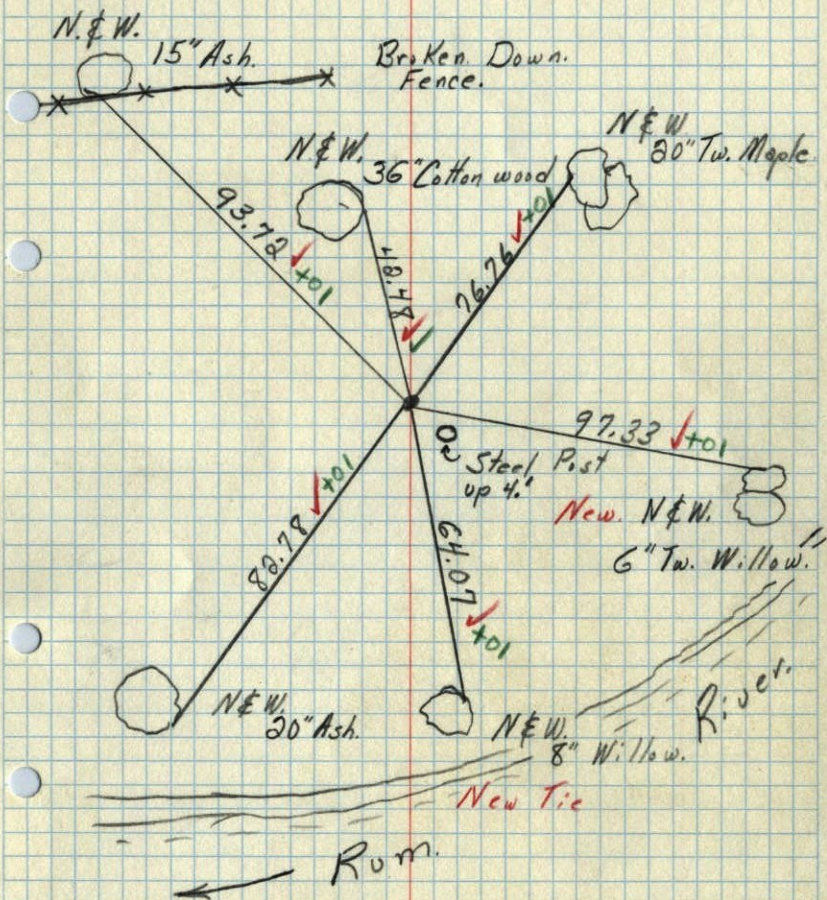 N.&W.
15" Ash.
Broken Down.
Fence.
N&W.
36" Cotton wood
N&W
20" Tw. Maple
93.72 ✓ +01
42.48 ✓✓
76.76 ✓ +01
97.33 ✓ +01
Steel Post
up 4."
New. N&W.
6" Tw. Willow."
82.78 ✓ +01
64.07 ✓ +01
N&W.
20" Ash.
N&W.
8" Willow.
New Tie
River.
Rum.